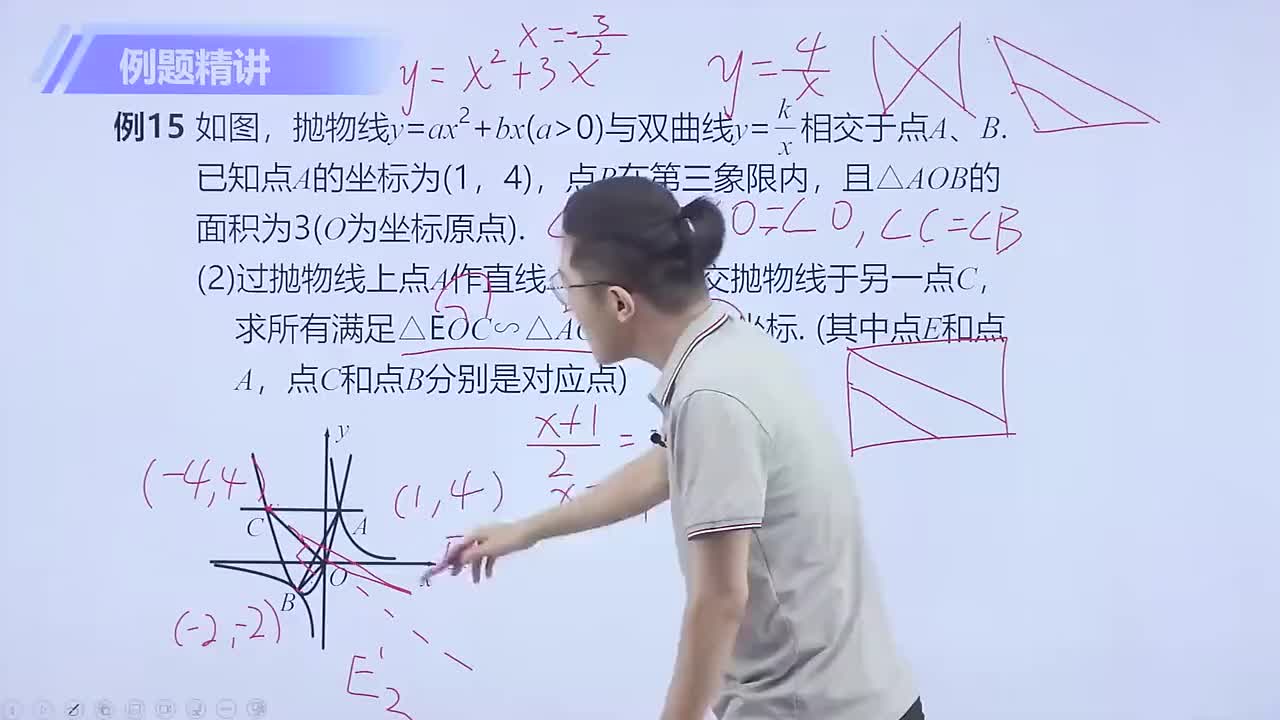 例题精讲
x=-3/2
y=x²+3x
y=4/x
例15 如图，抛物线y=ax²+bx(a>0)与双曲线y=k/x相交于点A、B.
已知点A的坐标为(1，4)，点B在第三象限内，且△AOB的
面积为3(O为坐标原点).
O=∠O,∠C=∠B
(2)过抛物线上点A作直线 交抛物线于另一点C，
求所有满足△EOC∽△AO 坐标. (其中点E和点
A，点C和点B分别是对应点)
x+1/2 =
x=
y
(-4,4)
(1,4)
C
A
O
x
B
(-2,-2)
E₂'